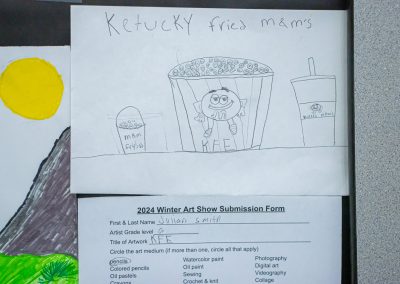 Ketucky fried m&m's
m&m
fried
KFE
2024 Winter Art Show Submission Form
First & Last Name Julian Smith
Artist Grade level 6
Title of Artwork KFE
Circle the art medium (if more one, circle all that apply)
pencils Watercolor paint Photography
Colored pencils Oil paint Digital art
Oil pastels Sewing Videography
Crayons Crochet & knit Collage